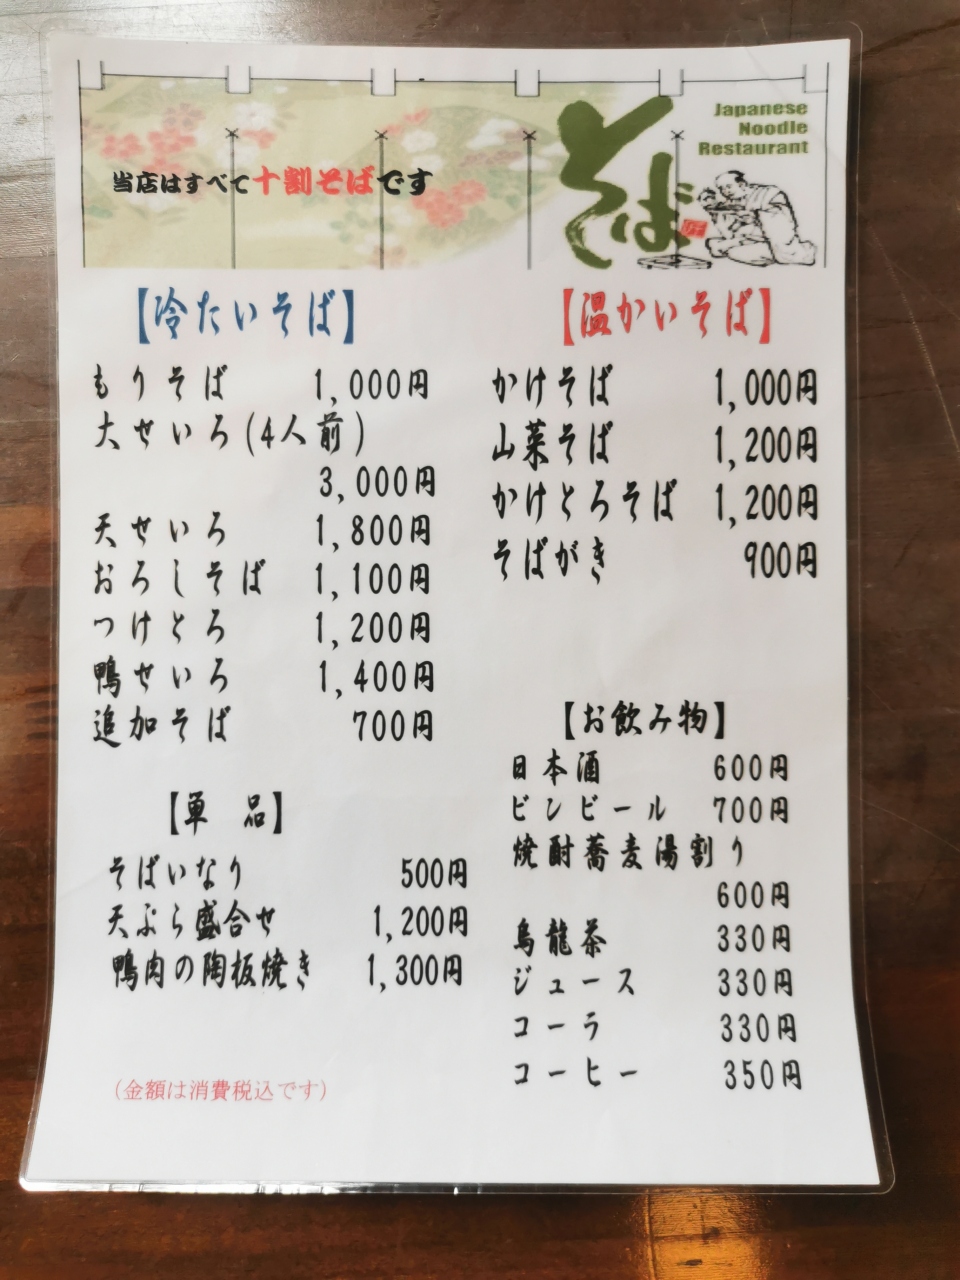 Japanese
Noodle
Restaurant
そば
匠
当店はすべて十割そばです
【冷たいそば】
もりそば 1,000円
大せいろ(4人前)
3,000円
天せいろ 1,800円
おろしそば 1,100円
つけとろ 1,200円
鴨せいろ 1,400円
追加そば 700円
【単 品】
そばいなり 500円
天ぷら盛合せ 1,200円
鴨肉の陶板焼き 1,300円
(金額は消費税込です)
【温かいそば】
かけそば 1,000円
山菜そば 1,200円
かけとろそば 1,200円
そばがき 900円
【お飲み物】
日本酒 600円
ビンビール 700円
焼酎蕎麦湯割り
600円
烏龍茶 330円
ジュース 330円
コーラ 330円
コーヒー 350円